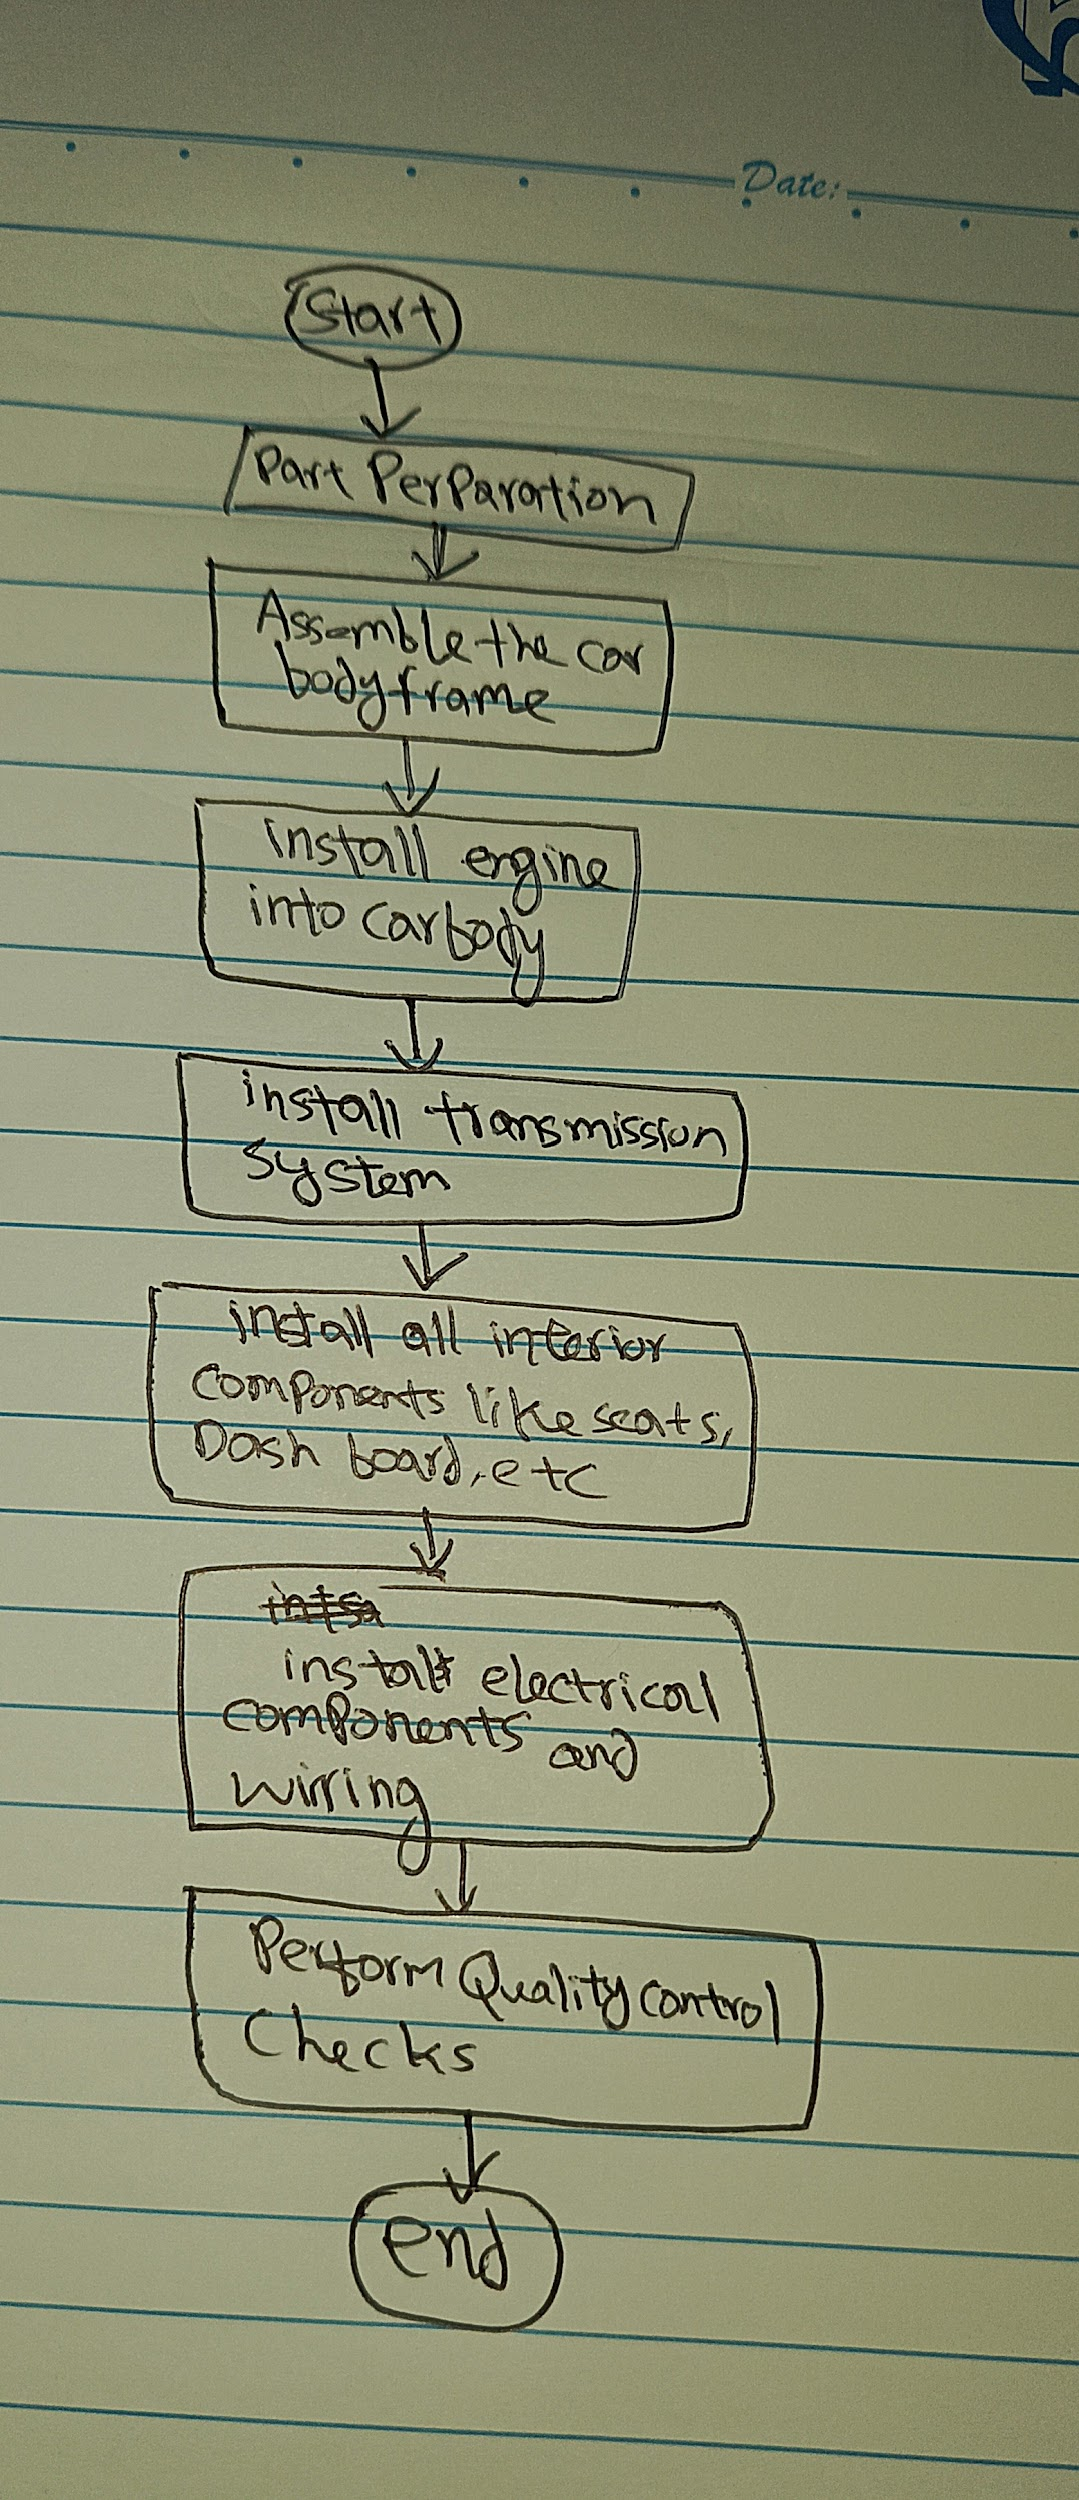 Date:
Start
Part PerParation
Assemble the car
body frame
install engine
into car body
install transmission
system
install all interior
components like seats,
Dash board, etc
install electrical
components and
wirring
Perform Quality control
Checks
end